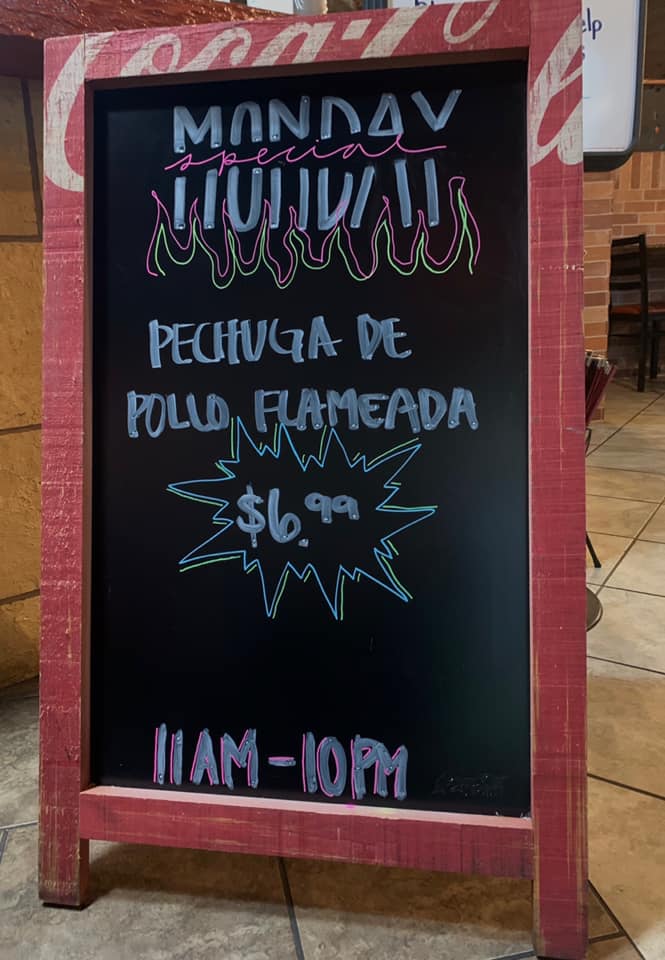 Coca-Co
elp
MONDAY
special
PECHUGA DE
POLLO FLAMEADA
$6.99
11AM-10PM